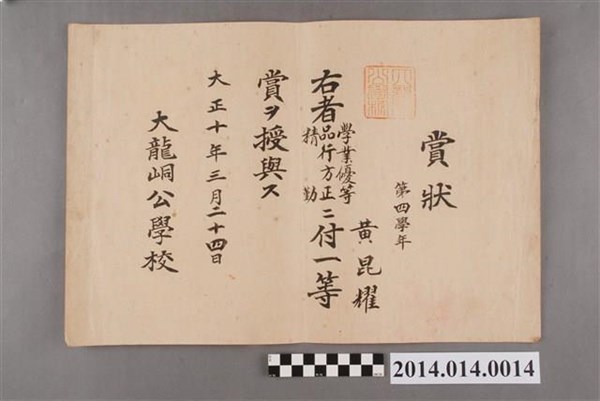 賞狀
第四學年
黃昆耀
右者學業優等品行方正精勤ニ付一等
賞ヲ授與ス
大正十年三月二十四日
大龍峒公學校
2014.014.0014